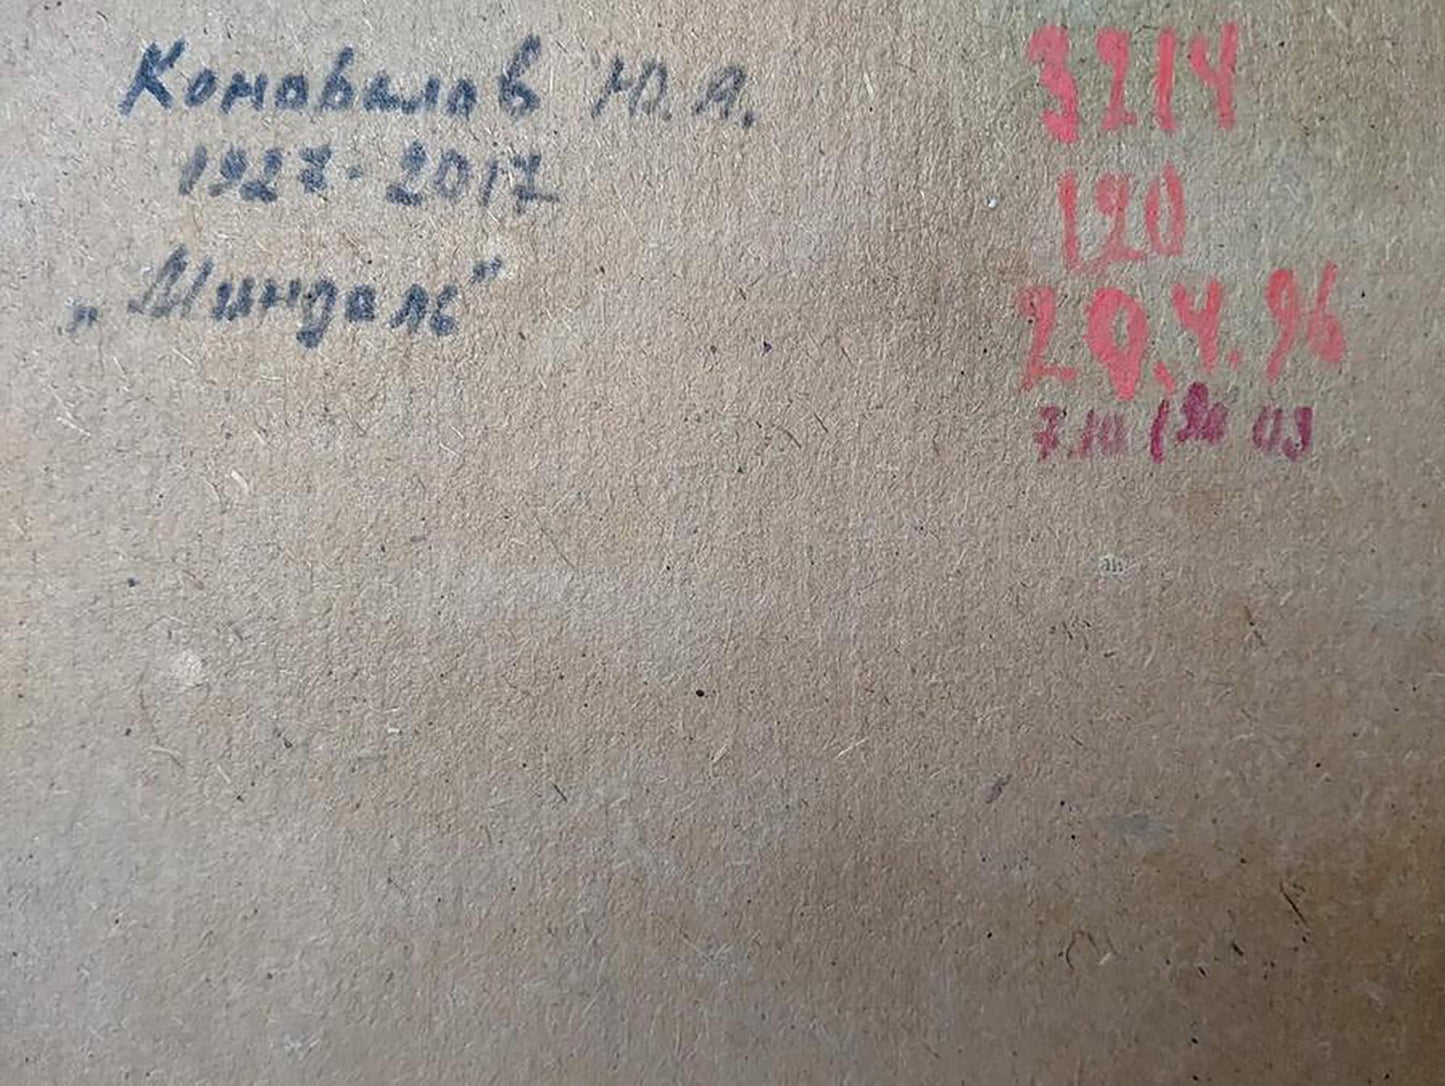 Коновалов Ю.А.
1927-2017
„Миндаль"
3214
120
20.4.96
7.10 03